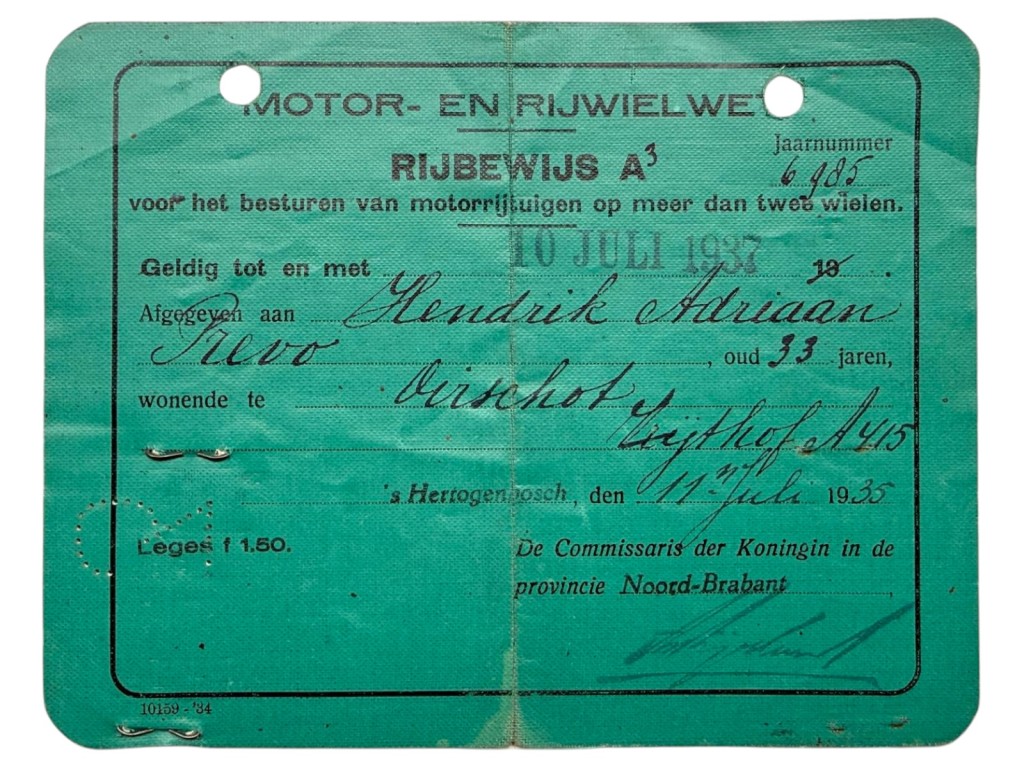 MOTOR- EN RIJWIELWET
Jaarnummer
RIJBEWIJS A³
6985
voor het besturen van motorrijtuigen op meer dan twee wielen.
Geldig tot en met 10 JULI 1937 19
Afgegeven aan Hendrik Adriaan
Prevo, oud 33 jaren,
wonende te Oirschot
Vrijthof A 415
's Hertogenbosch, den 11n Juli 1935
Leges f 1.50.
De Commissaris der Koningin in de
provincie Noord-Brabant
10159 - '34